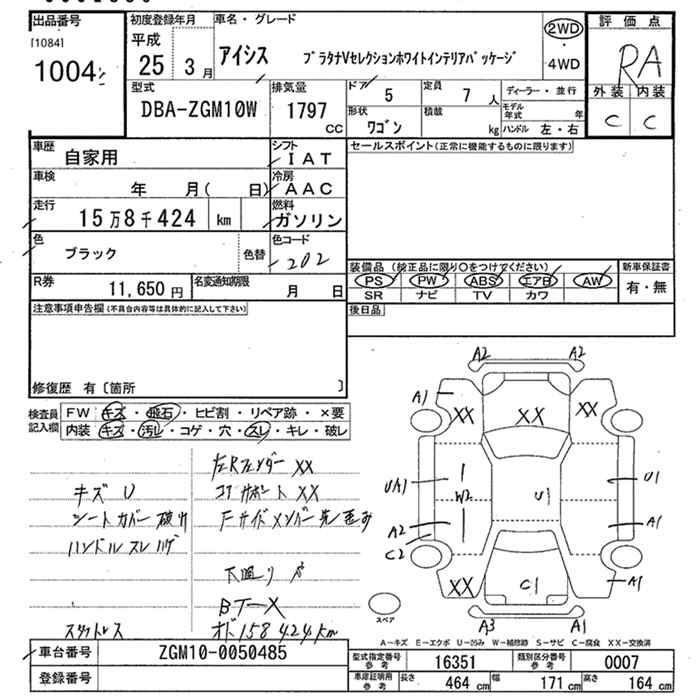 出品番号 初度登録年月 車名・グレード 評価点
[1084] 平成
1004 25 3月 アイシス プラタナVセレクションホワイトインテリアパッケージ 2WD・4WD RA
型式 排気量 ドア 5 定員 7人 ディーラー・並行 外装 内装
DBA-ZGM10W 1797cc 形状 ワゴン 積載 kg モデル年式 年 C C
ハンドル 左・右
車歴 自家用 シフト IAT セールスポイント(正常に機能するものに限ります)
車検 年 月( 日) 冷房 AAC
走行 15万8千424 km 燃料 ガソリン
色 ブラック 色替 色コード 202
装備品(純正品に限り○をつけてください) 新車保証書
PS PW ABS エアB AW 有・無
SR ナビ TV カワ
R券 11,650円 名変通知期限 月 日
後日品
注意事項申告欄(不具合内容等は具体的に記入して下さい)
修復歴 有〔箇所 〕
検査員記入欄 FW キズ・飛石・ヒビ割・リペア跡・×要
内装 キズ・汚レ・コゲ・穴・スレ・キレ・破レ
キズ U
シートカバー破れ
ハンドルスレ
スタットレス
左Rフェンダー XX
コアサポート XX
Fサイドメンバー先歪み
下廻りサ
BT-X
オド158424km
A2 A2
A1 XX XX XX
UA1 W2 U1 U1
A2 A1
C2
XX C1 A1
A3 A1
スペア
A-キズ E-エクボ U-凹み W-補修跡 S-サビ C-腐食 XX-交換済
車台番号 ZGM10-0050485
登録番号
型式指定番号 参考 16351 類別区分番号 参考 0007
車庫証明用 参考 長さ 464cm 幅 171cm 高さ 164cm